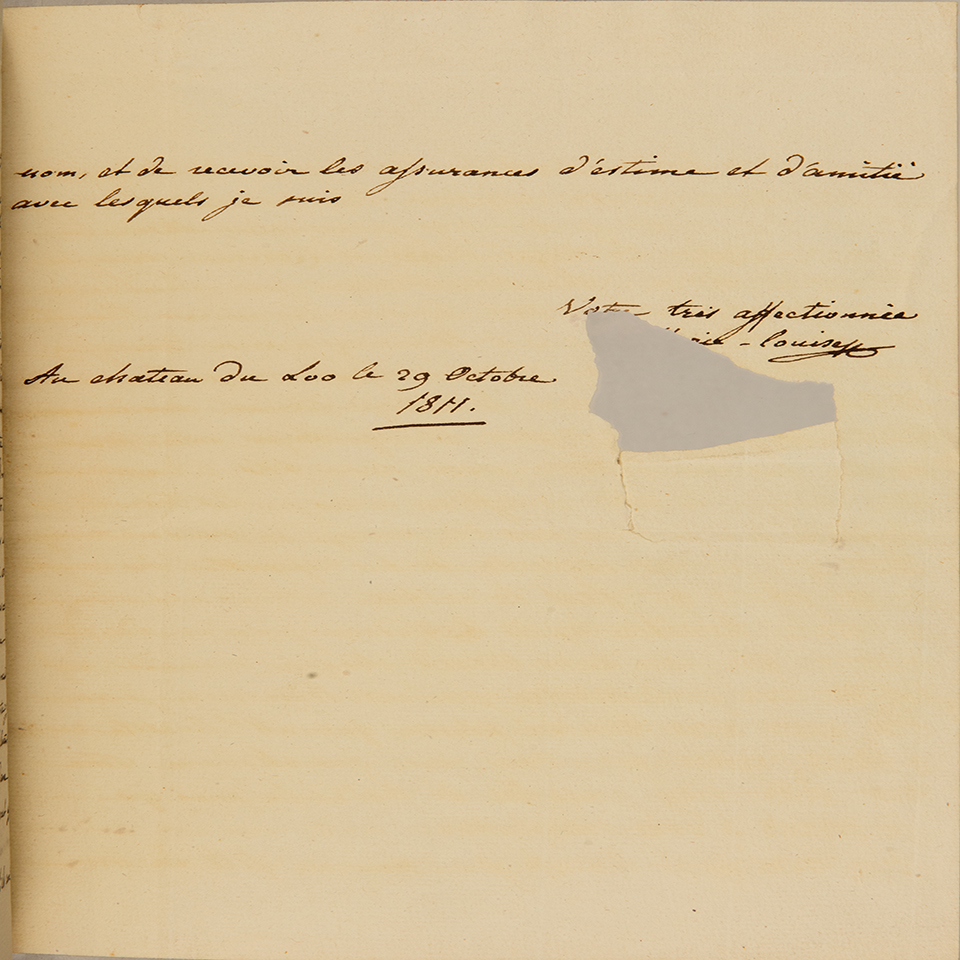 nom, et de recevoir les assurances d'éstime et d'amitié
avec lesquels je suis
Votre très affectionnée
-louise
Au chateau du Loo le 29 Octobre
1811.